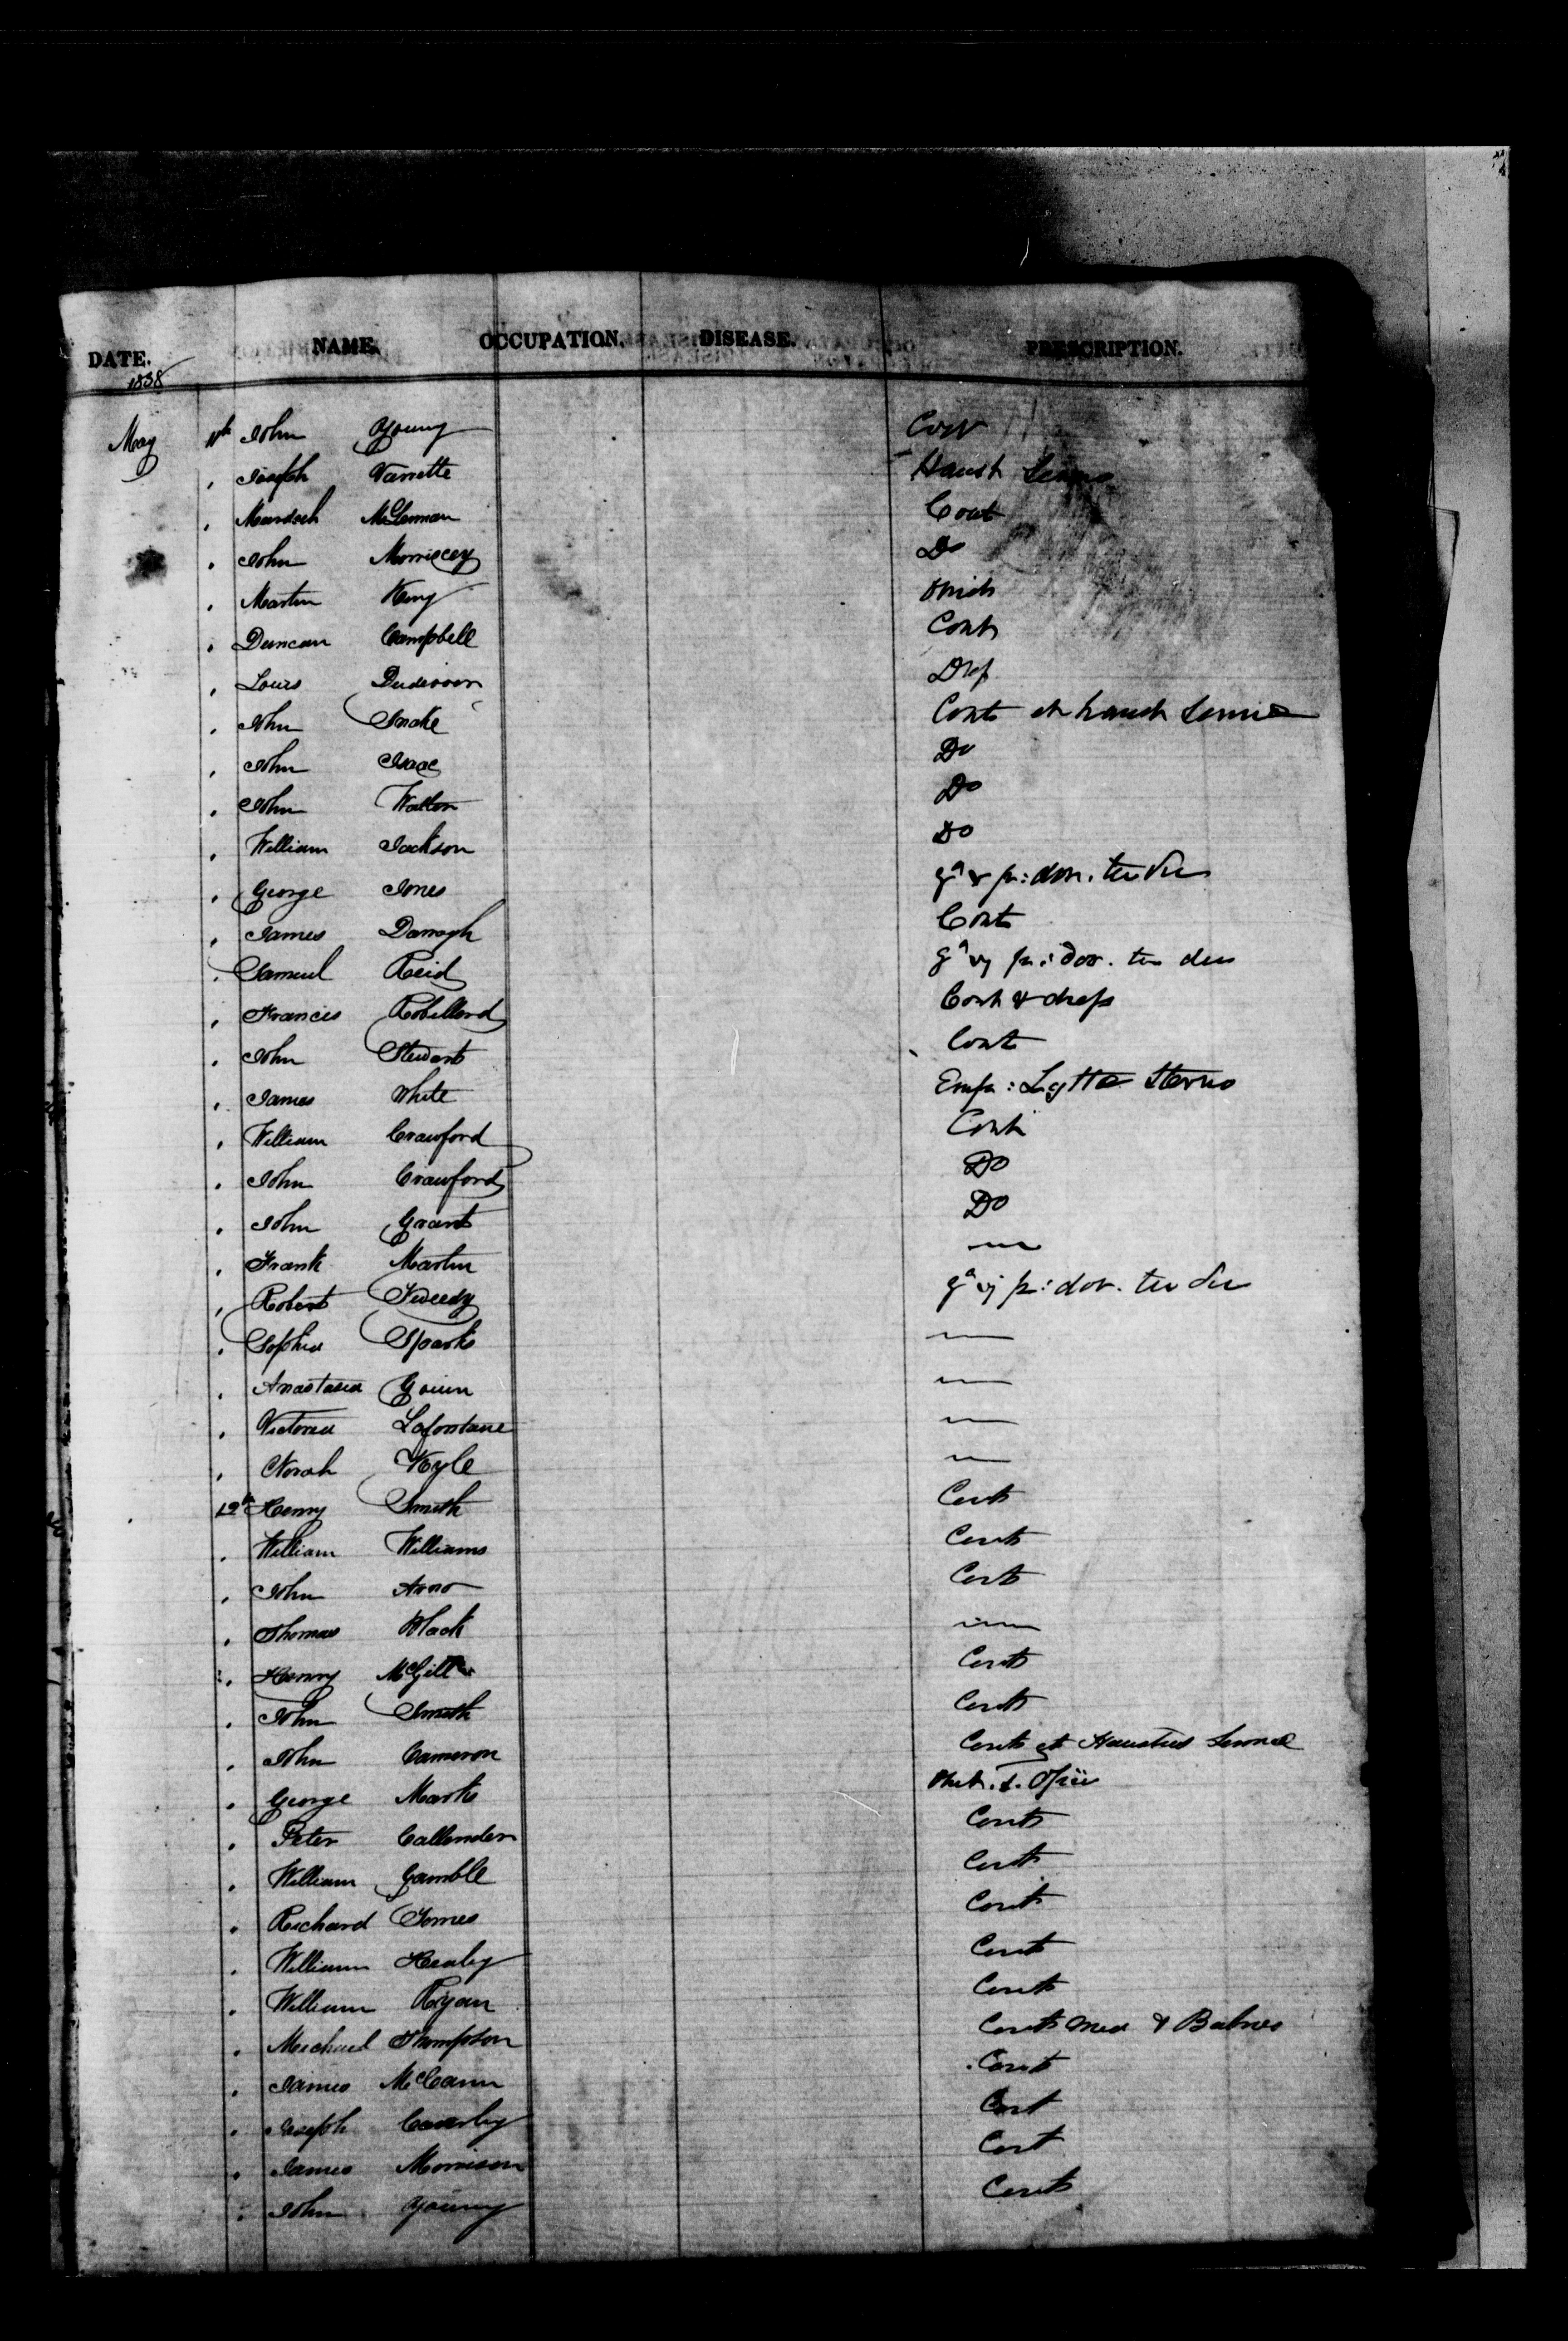 DATE. NAME. OCCUPATION. DISEASE. PRESCRIPTION.
1838
May 11th John Young Cont
" Joseph Varrette Haust Sennae
" Murdoch McLennan Cont
" John Morriscey Do
" Martin King Omit
" Duncan Campbell Cont
" Louis
" John Snake Cont et haust Sennae
" John Isaac Do
" John Walton Do
" William Jackson Do
" George Jones gr v pu: dov. ter die
" James Darragh Cont
" Samuel Reid gr vj pu: dov. ter die
" Francis Robillard Cont & drops
" John Stewart Cont
" James White Emp: Lyttae Sterno
" William Crawford Cont
" John Crawford Do
" John Grant Do
" Frank Martin —
" Robert Tweedy gr vj pu: dov. ter die
" Sophia Sparks —
" Anastasia —
" Victoria Lafontane —
" Norah Kyle —
12th Henry Smith Cont
" William Williams Cont
" John Arno Cont
" Thomas Black —
" Henry McGill Cont
" John Smith Cont
" John Cameron Cont et Haustus Sennae
" George Marks Opii
" Peter Callender Cont
" William Gamble Cont
" Richard Jones Cont
" William Healey Cont
" William Ryan Cont
" Michael Thompson Cont Med & Balneo
" James McCann Cont
" Joseph Cont
" James Morrison Cont
" John Young Cont